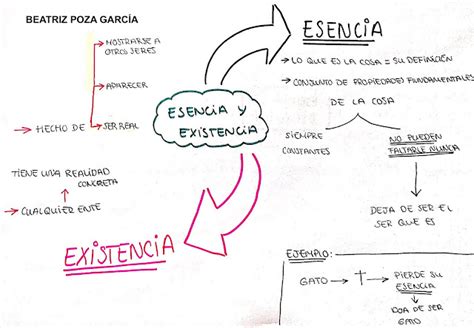 BEATRIZ POZA GARCÍA
MOSTRARSE A
OTROS SERES
APARECER
HECHO DE
SER REAL
TIENE UNA REALIDAD
CONCRETA
CUALQUIER ENTE
EXISTENCIA
ESENCIA Y
EXISTENCIA
ESENCIA
LO QUE ES LA COSA = SU DEFINICIÓN
CONJUNTO DE PROPIEDADES FUNDAMENTALES
DE LA COSA
SIEMPRE
CONSTANTES
NO PUEDEN
FALTARLE NUNCA
DEJA DE SER EL
SER QUE ES
EJEMPLO:
GATO
PIERDE SU
ESENCIA
DEJA DE SER
GATO